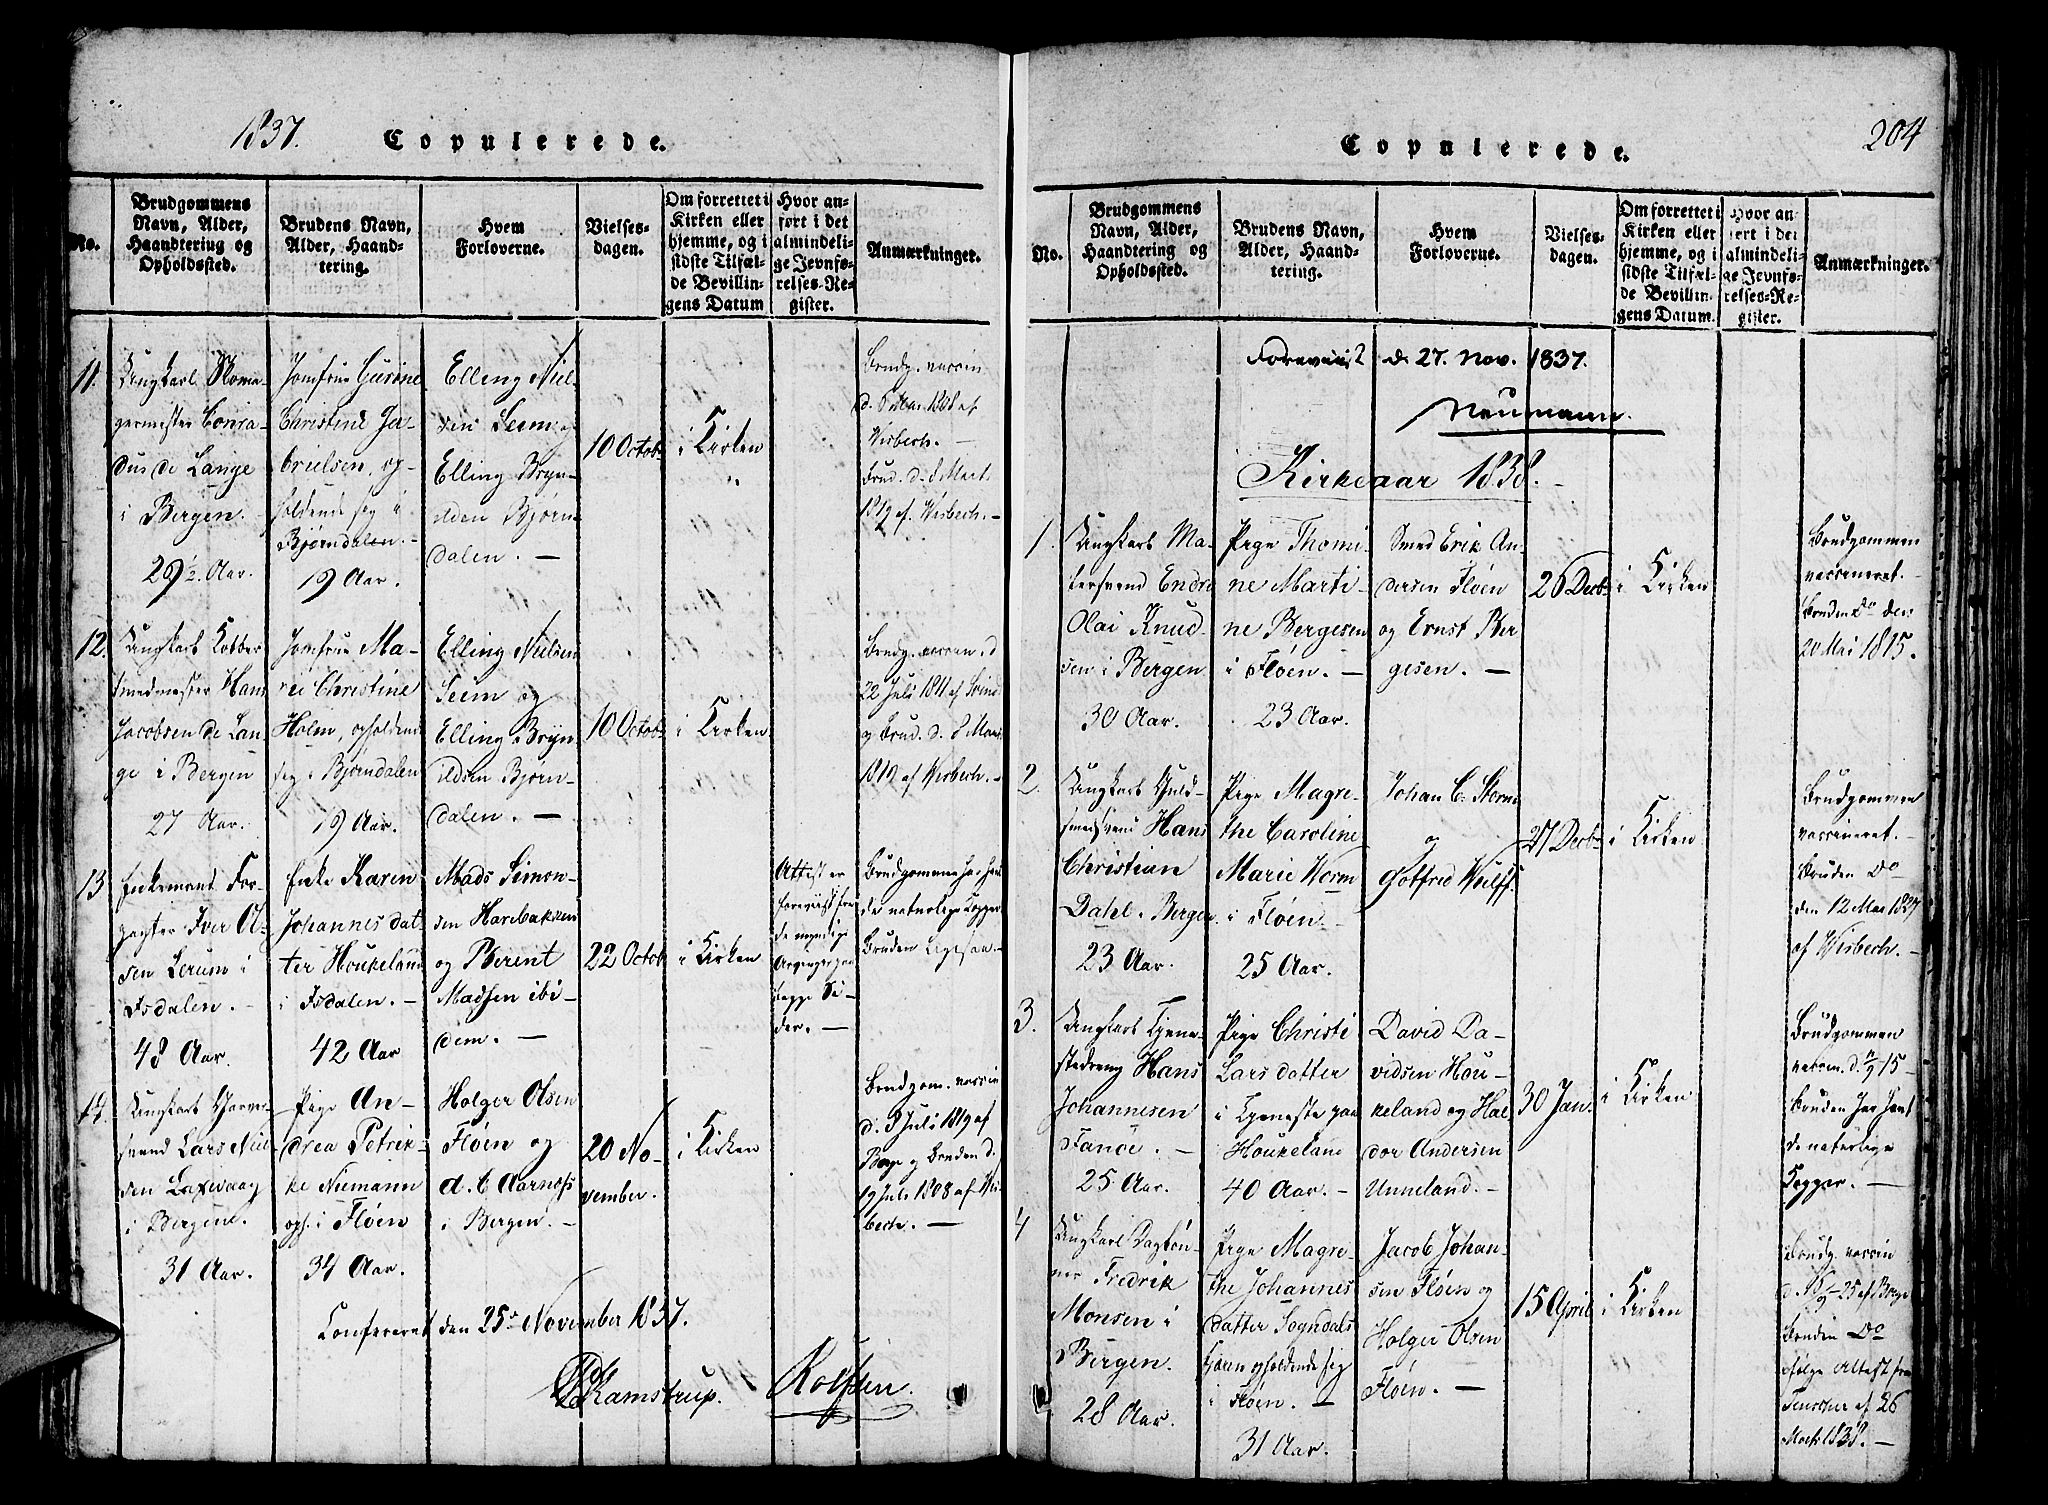 1837.
Copulerede.
No.
Brudgommens
Navn, Alder,
Haandtering og
Opholdssted.
Brudens Navn,
Alder, Haand-
tering.
Hvem
Forloverne.
Vielses-
dagen.
Om forrettet i
Kirken eller
hjemme, og i
sidste Tilfæl-
de Bevillin-
gens Datum
Hvor an-
ført i det
almindeli-
ge Jevnfø-
relses-Re-
gister.
Anmærkninger.
11.
Ungkarl Skoma-
germester Conra-
dus de Lange
i Bergen.
29½ Aar.
Jomfrue Gurine
Christine Ja-
brielsen, op-
holdende sig i
Bjørndalen.
19 Aar.
Elling Niel-
sen Seim og
Elling Bryn-
ildsen Bjørn-
dalen. —
10 Octobr
i Kirken
Brudg. vaccin
Wisbech. —
Brud. d. 8 Mart.
1812 af Wisbech. —
12.
Ungkarl Kobber
smedmester Hans
Jacobsen de Lan-
ge i Bergen
27 Aar.
Jomfrue Ma-
ren Christine
Holm, opholdend
sig i Bjørndalen
19 Aar.
Elling Nielsen
Seim og
Elling Bryn-
ildsen Bjørn-
dalen. —
10 Octob
i Kirken
Brudg. vaccin. d
22 Juli 1811 af
og Brud. d. 8 Mart
1812 af Wisbech. —
13
Enkemand For-
pagter Iver Ol-
sen Lerum i
Isdalen. —
48 Aar.
Enke Karen
Johannesdat-
ter Houkeland
i Isdalen. —
42 Aar
Mads Simon-
sen Harebakken
og Berent
Madsen ibi-
dem. —
22 Octob
i Kirken
Attest er
foreviist fra
de myndige
Arvinger paa
begge Si-
der. —
Brudgommen har hav
de naturlige Kopper
Bruden Ligesaa. —
14.
Ungkarl Garver-
svend Lars Niel-
sen Laxevaag
i Bergen.
31 Aar.
Pige An-
drea Petrik-
ke Niemann
oph. i Fløen
34 Aar.
Holger Olsen
Fløen og
i Bergen. —
20 No-
vember.
i Kirken
Brudgom. vaccin
d. 9 Juli 1819 af
Borge og Bruden d.
19 Juli 1808 af Wis-
bech. —
Confereret den 25de November 1837.
Kamstrup.
Rolfsen.
Copulerede.
204
No.
Brudgommens
Navn, Alder,
Haandtering og
Opholdssted.
Brudens Navn,
Alder, Haand-
tering.
Hvem
Forloverne.
Vielses-
dagen.
Om forrettet i
Kirken eller
hjemme, og i
sidste Tilfæl-
de Bevillin-
gens Datum.
Hvor an-
ført i det
almindeli-
ge Jevnfø-
relses-Re-
gister.
Anmærkninger.
Foreviist d. 27. Nov. 1837.
Neumann.
Kirkeaar 1838. —
1.
Ungkarl Ma-
lersvend Endre
Olai Knud-
sen i Bergen
30 Aar.
Pige Thomi-
ne Marti-
ne Bergesen
i Fløen. —
23 Aar.
Smed Erik An-
dersen Fløen
og Ernst Ber
gesen. —
26 Decbr
i Kirken
Brudgommen
vaccineret. —
Bruden Do den
20 Mai 1815.
2.
Ungkarl Guld-
smedsvend Hans
Christian
Dahl i Bergen
23 Aar.
Pige Magre-
the Caroline
Marie Worm
i Fløen. —
25 Aar.
Johan C. Storm
og
Gotfred Wulff.
27 Decbr
i Kirken
Brudgommen
vaccineret. —
Bruden Do
den 12 Mai 1827
af Wisbech. —
3.
Ungkarl Tjene-
stedreng Hans
Johannesen
Fanøe. —
25 Aar.
Pige Christi
Larsdatter
i Tjeneste paa
Houkeland
40 Aar. —
David Da-
vidsen Hou-
keland og Hal-
dor Andersen
Unneland. —
30 Jan.
i Kirken
Brudgommen
vaccin. d. 11/9 15
Bruden har havt
de naturlige
Kopper. —
4
Ungkarl Dagløn-
ner Fredrik
Monsen i
Bergen.
28 Aar.
Pige Magre-
the Johannes
datter Sogndals
opholdende sig
i Fløen. —
31 Aar.
Jacob Johan-
sen Fløen og
Holger Olsen
Fløen. —
15 April
i Kirken
Brudg. vaccin
Bruden Do
ifølge Attest fra
af 26
Marts 1838. —